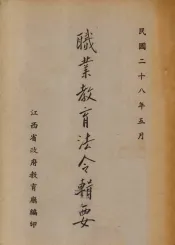 民國二十八年五月
職業教育法令輯要
江西省政府教育廳編印